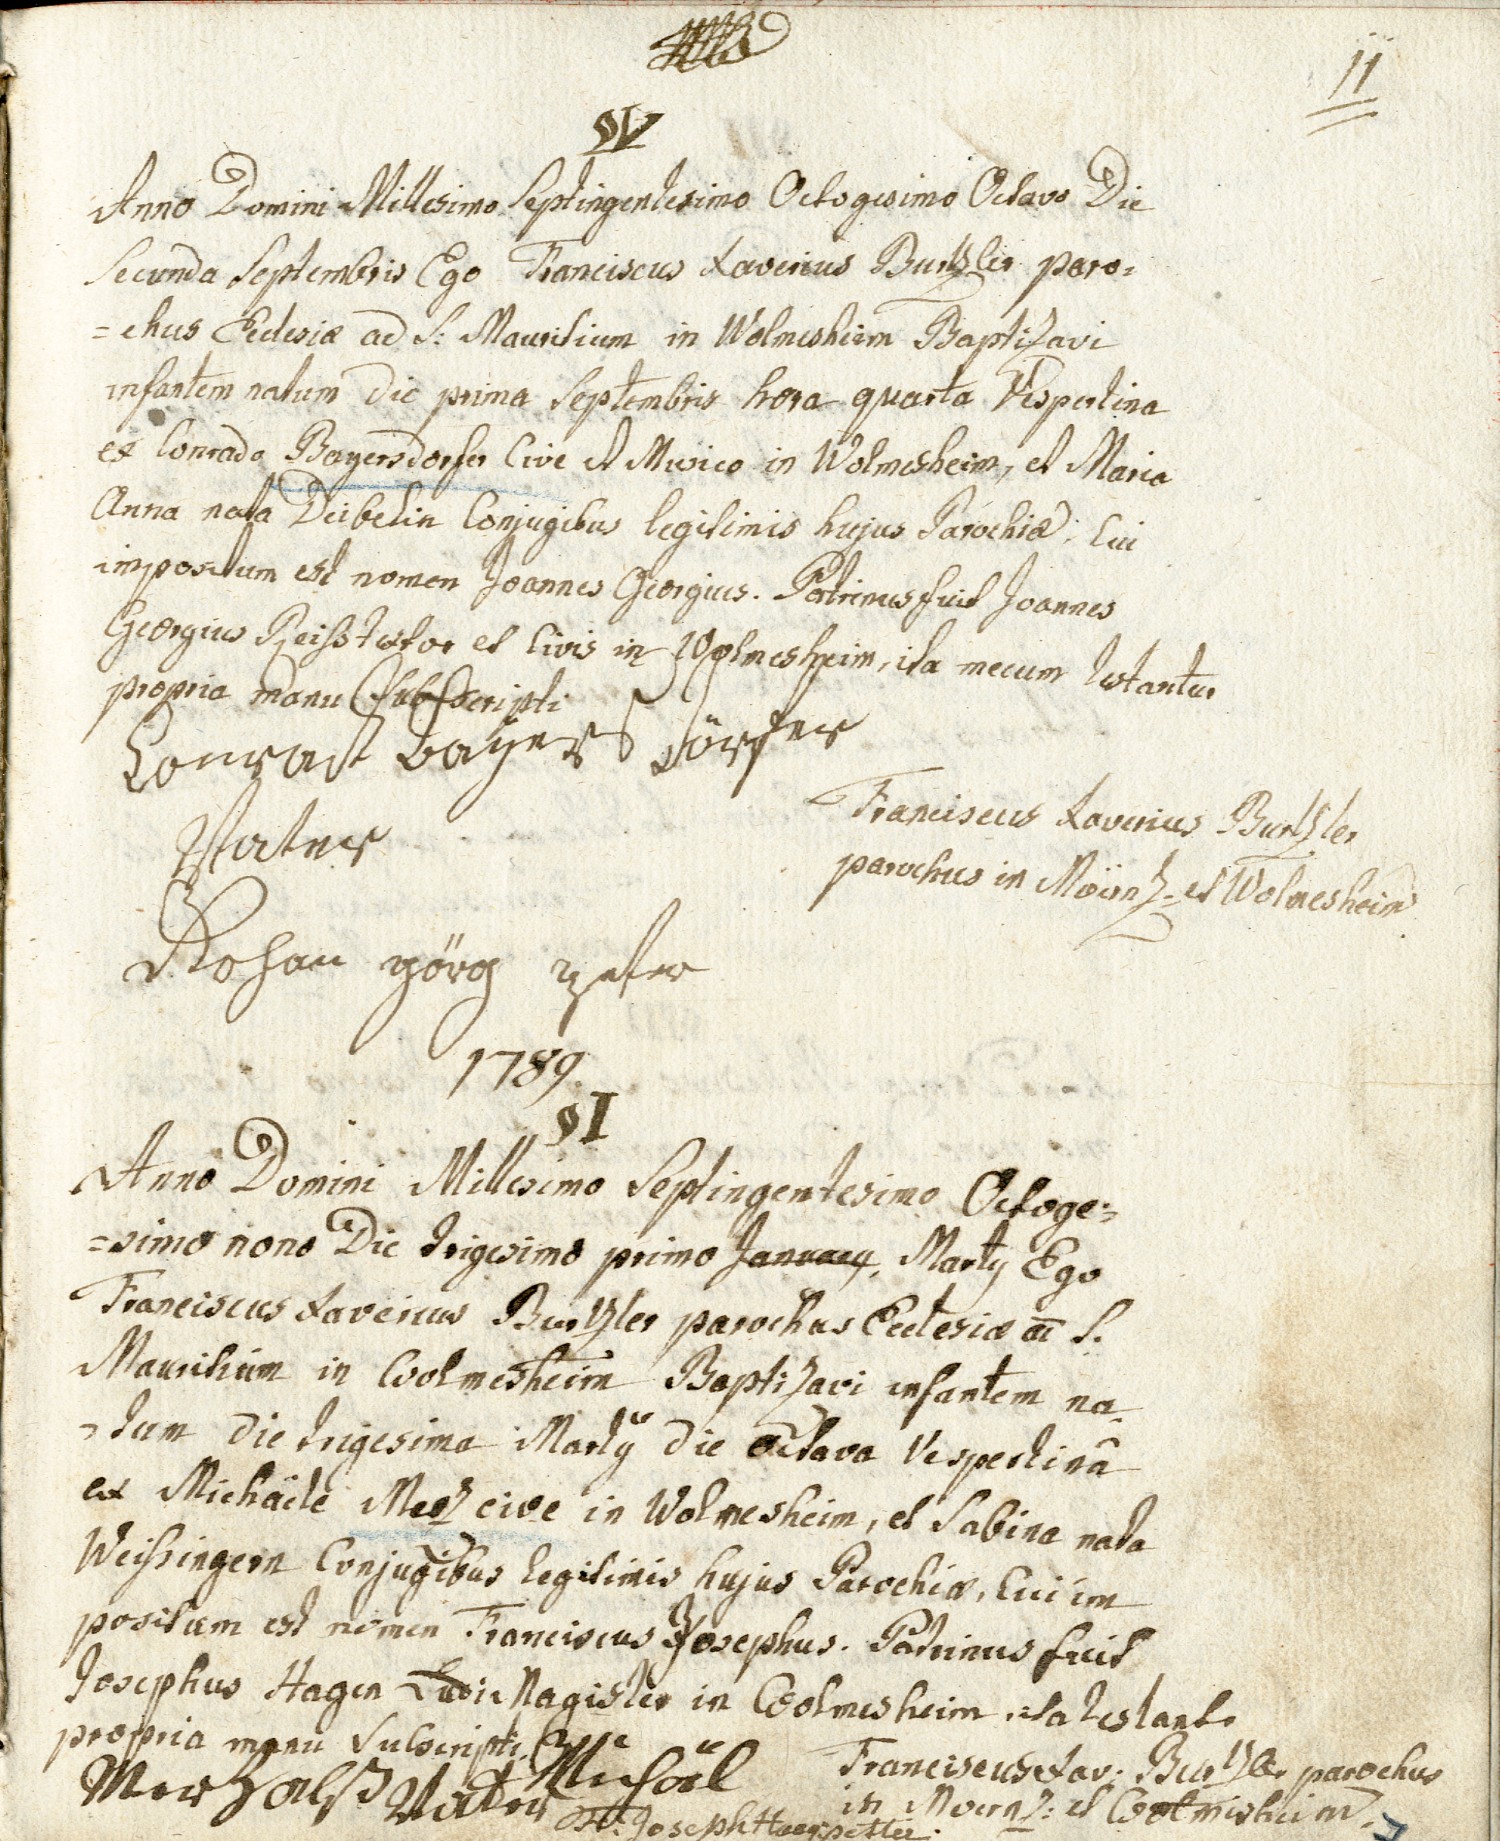 11
§ IV
Anno Domini Millesimo Septingentesimo Octogesimo Octavo Die
Secunda Septembris Ego Franciscus Xaverius Burtzler paro=
=chus Ecclesiæ ad S: Mauritium in Wolmesheim Baptizavi
infantem natum Die prima Septembris hora quarta Vespertina
ex Conrado Bayersdorfer Cive et Musico in Wolmesheim, et Maria
Anna nata Deibelin Conjugibus legitimis hujus Parochiæ; Cui
impositum est nomen Joannes Georgius. Patrinus fuit Joannes
Georgius et Civis in Wolmesheim, ita mecum testantur
propria manu Subscripti
Conradt bayers dörfer
Vater
Franciscus Xaverius Burtzler
parochus in Mörntz: et Wolmesheim
Johan görg
1789.
§ I
Anno Domini Millesimo Septingentesimo Octoge=
=simo nono Die trigesimo primo January, Martÿ Ego
Franciscus Xaverius Burtzler parochus Ecclesiæ ad S.
Mauritium in Wolmesheim Baptizavi infantem na=
=tum Die trigesima Martÿ die octava Vespertinâ
ex Michäele Mertz cive in Wolmesheim, et Sabina nata
Weissingern Conjugibus legitimis hujus Parochiæ, Cui im
positum est nomen Franciscus Josephus. Patrinus fuit
Josephus Hagen Ludi Magister in Wolmesheim ita testant.
propria manu Subscripti.
Merz als Vater Michäel
Franciscus Xav: Burtzler parochus
in Moerntz: et Wolmesheim.
Joseph